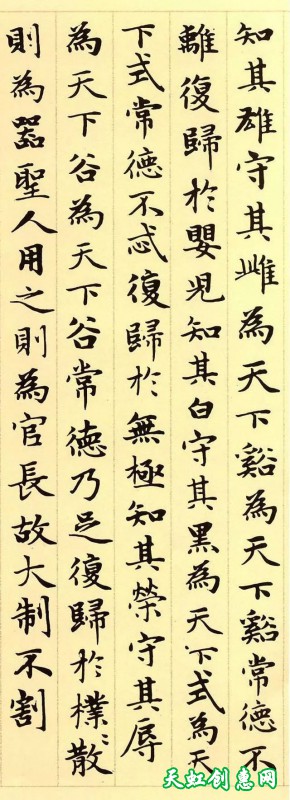 知其雄守其雌為天下谿為天下谿常德不
離復歸於嬰兒知其白守其黑為天下式為天
下式常德不忒復歸於無極知其榮守其辱
為天下谷為天下谷常德乃足復歸於樸〻散
則為器聖人用之則為官長故大制不割
天虹创惠网